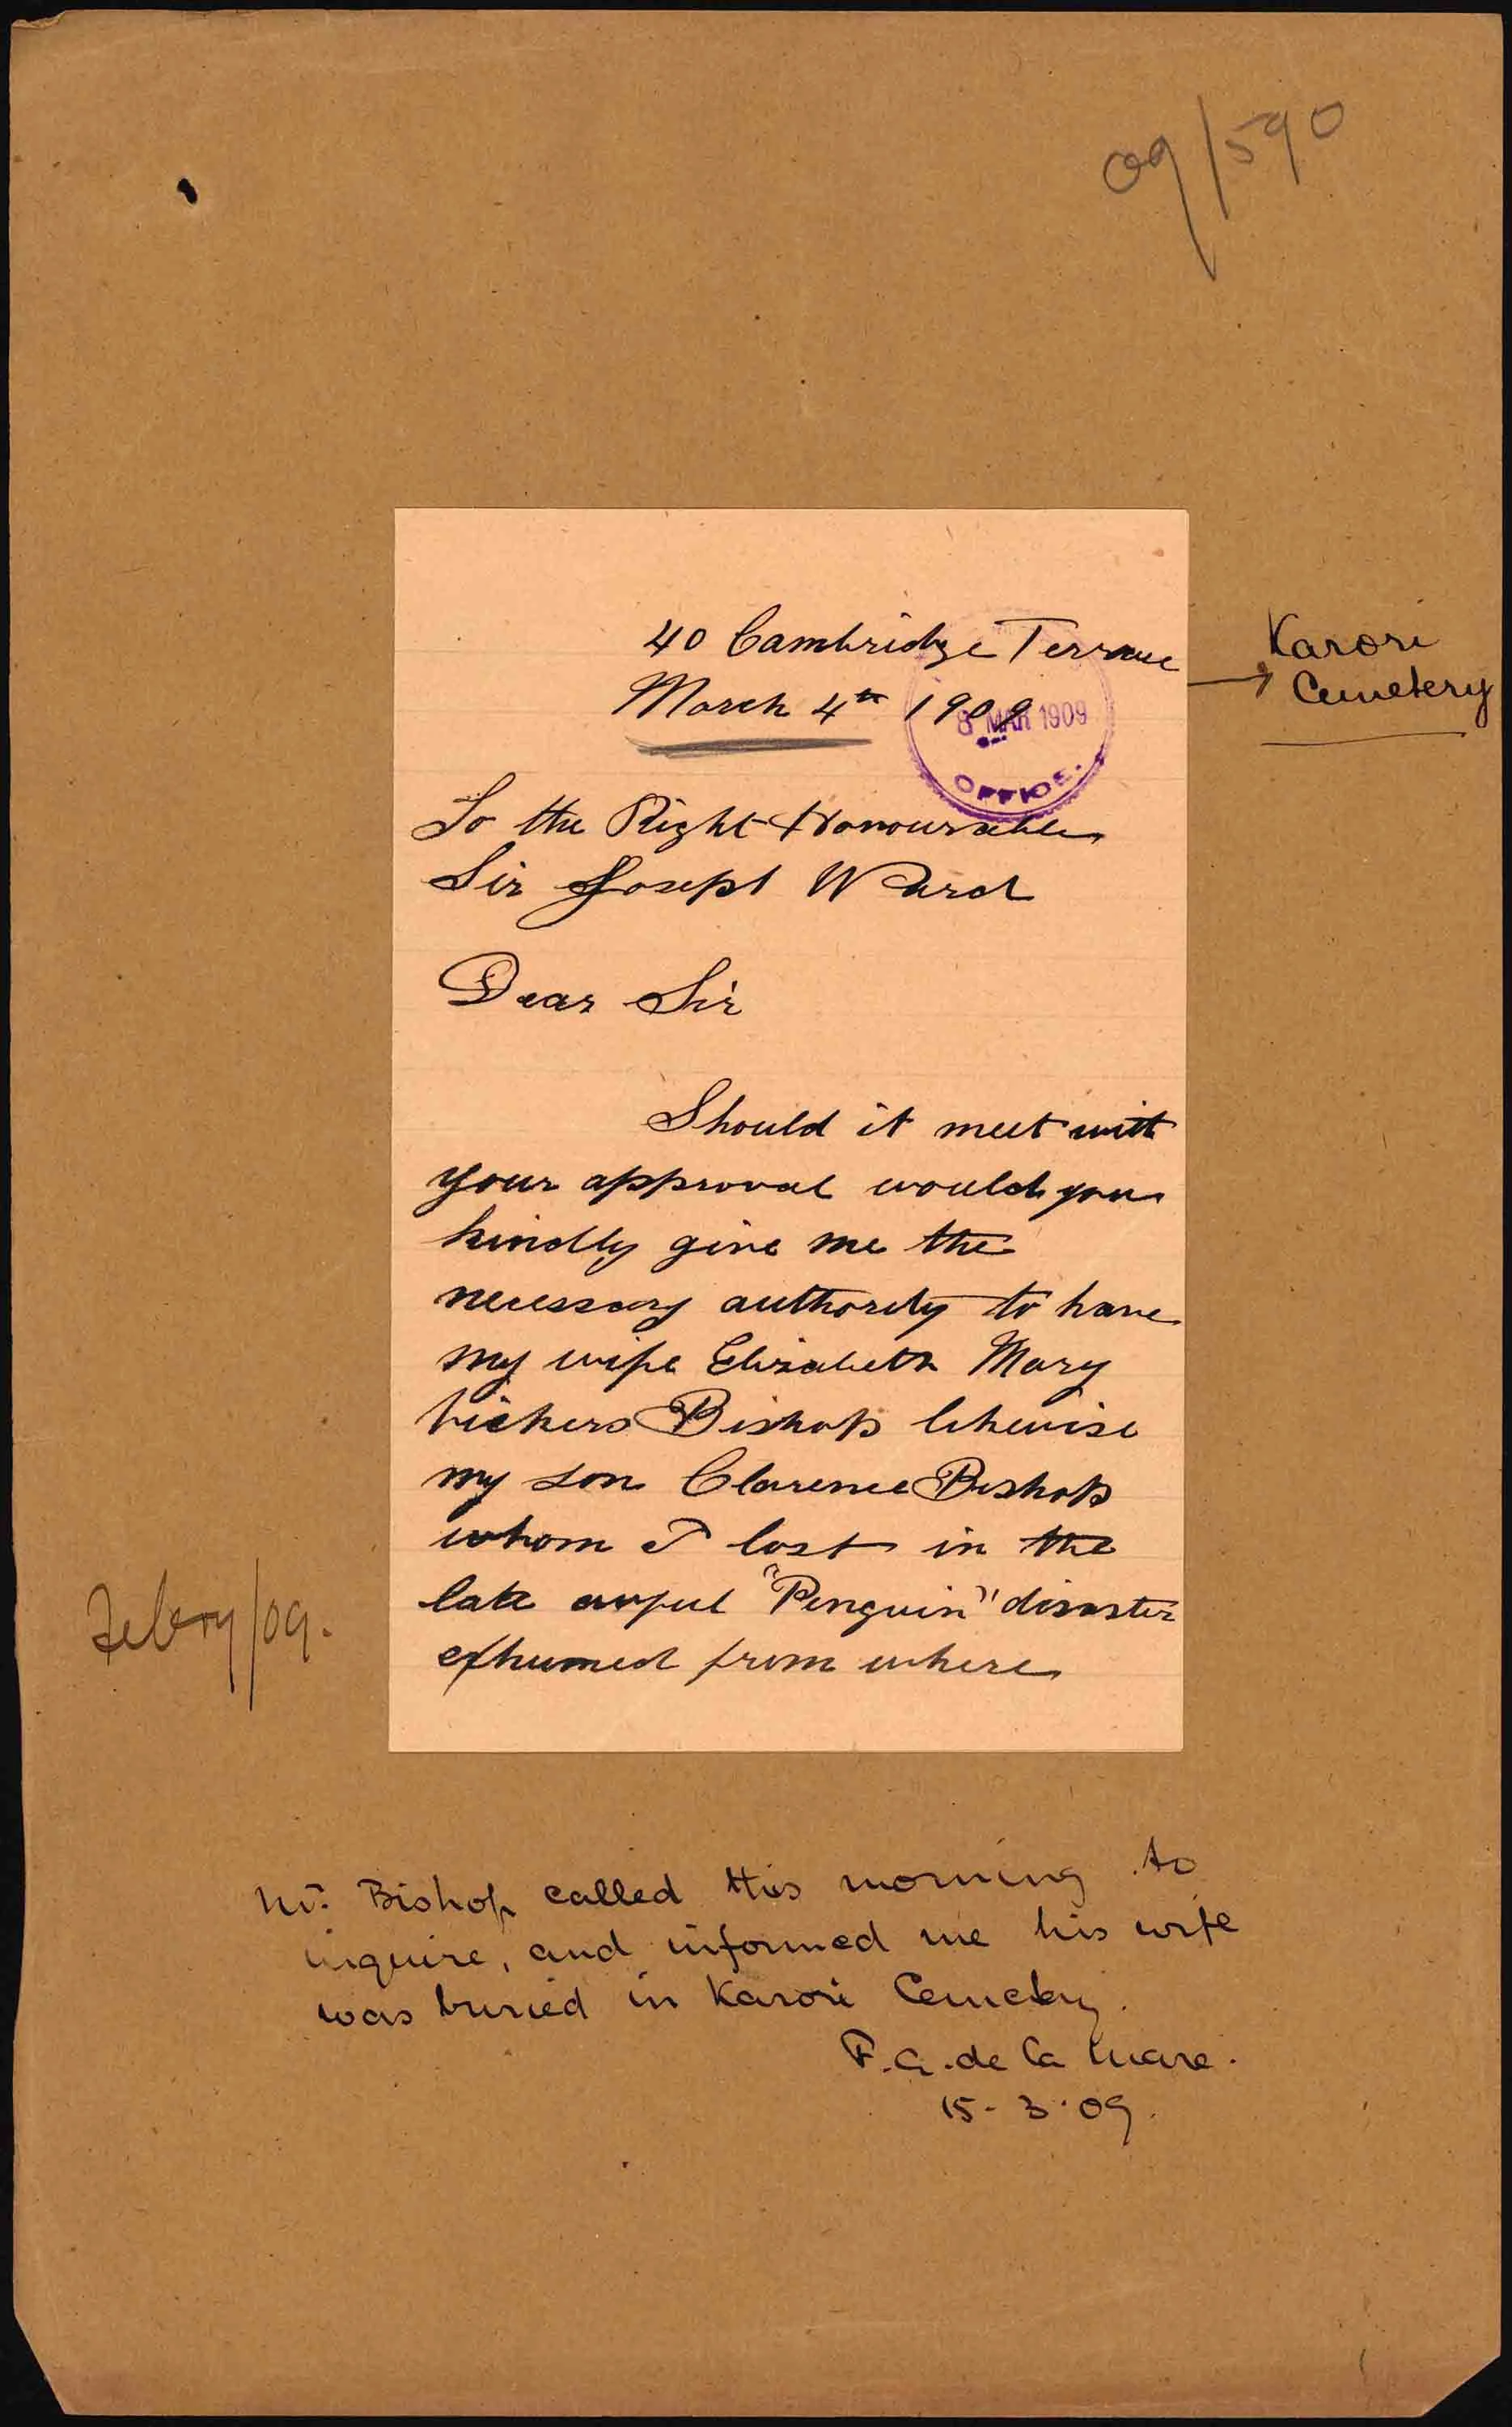 09/590
40 Cambridge Terrace
March 4th 1909
8 MAR 1909
OFFICE.
Karori
Cemetery
To the Right Honourable
Sir Joseph Ward
Dear Sir
Should it meet with
your approval would you
kindly give me the
necessary authority to have
my wife Elizabeth Mary
Vickers Bishop likewise
my son Clarence Bishop
whom I lost in the
late awful "Penguin" disaster
exhumed from where
Febry/09.
Mr. Bishop called this morning to
inquire, and informed me his wife
was buried in Karori Cemetery.
F.G. de la Mare.
15-3-09.